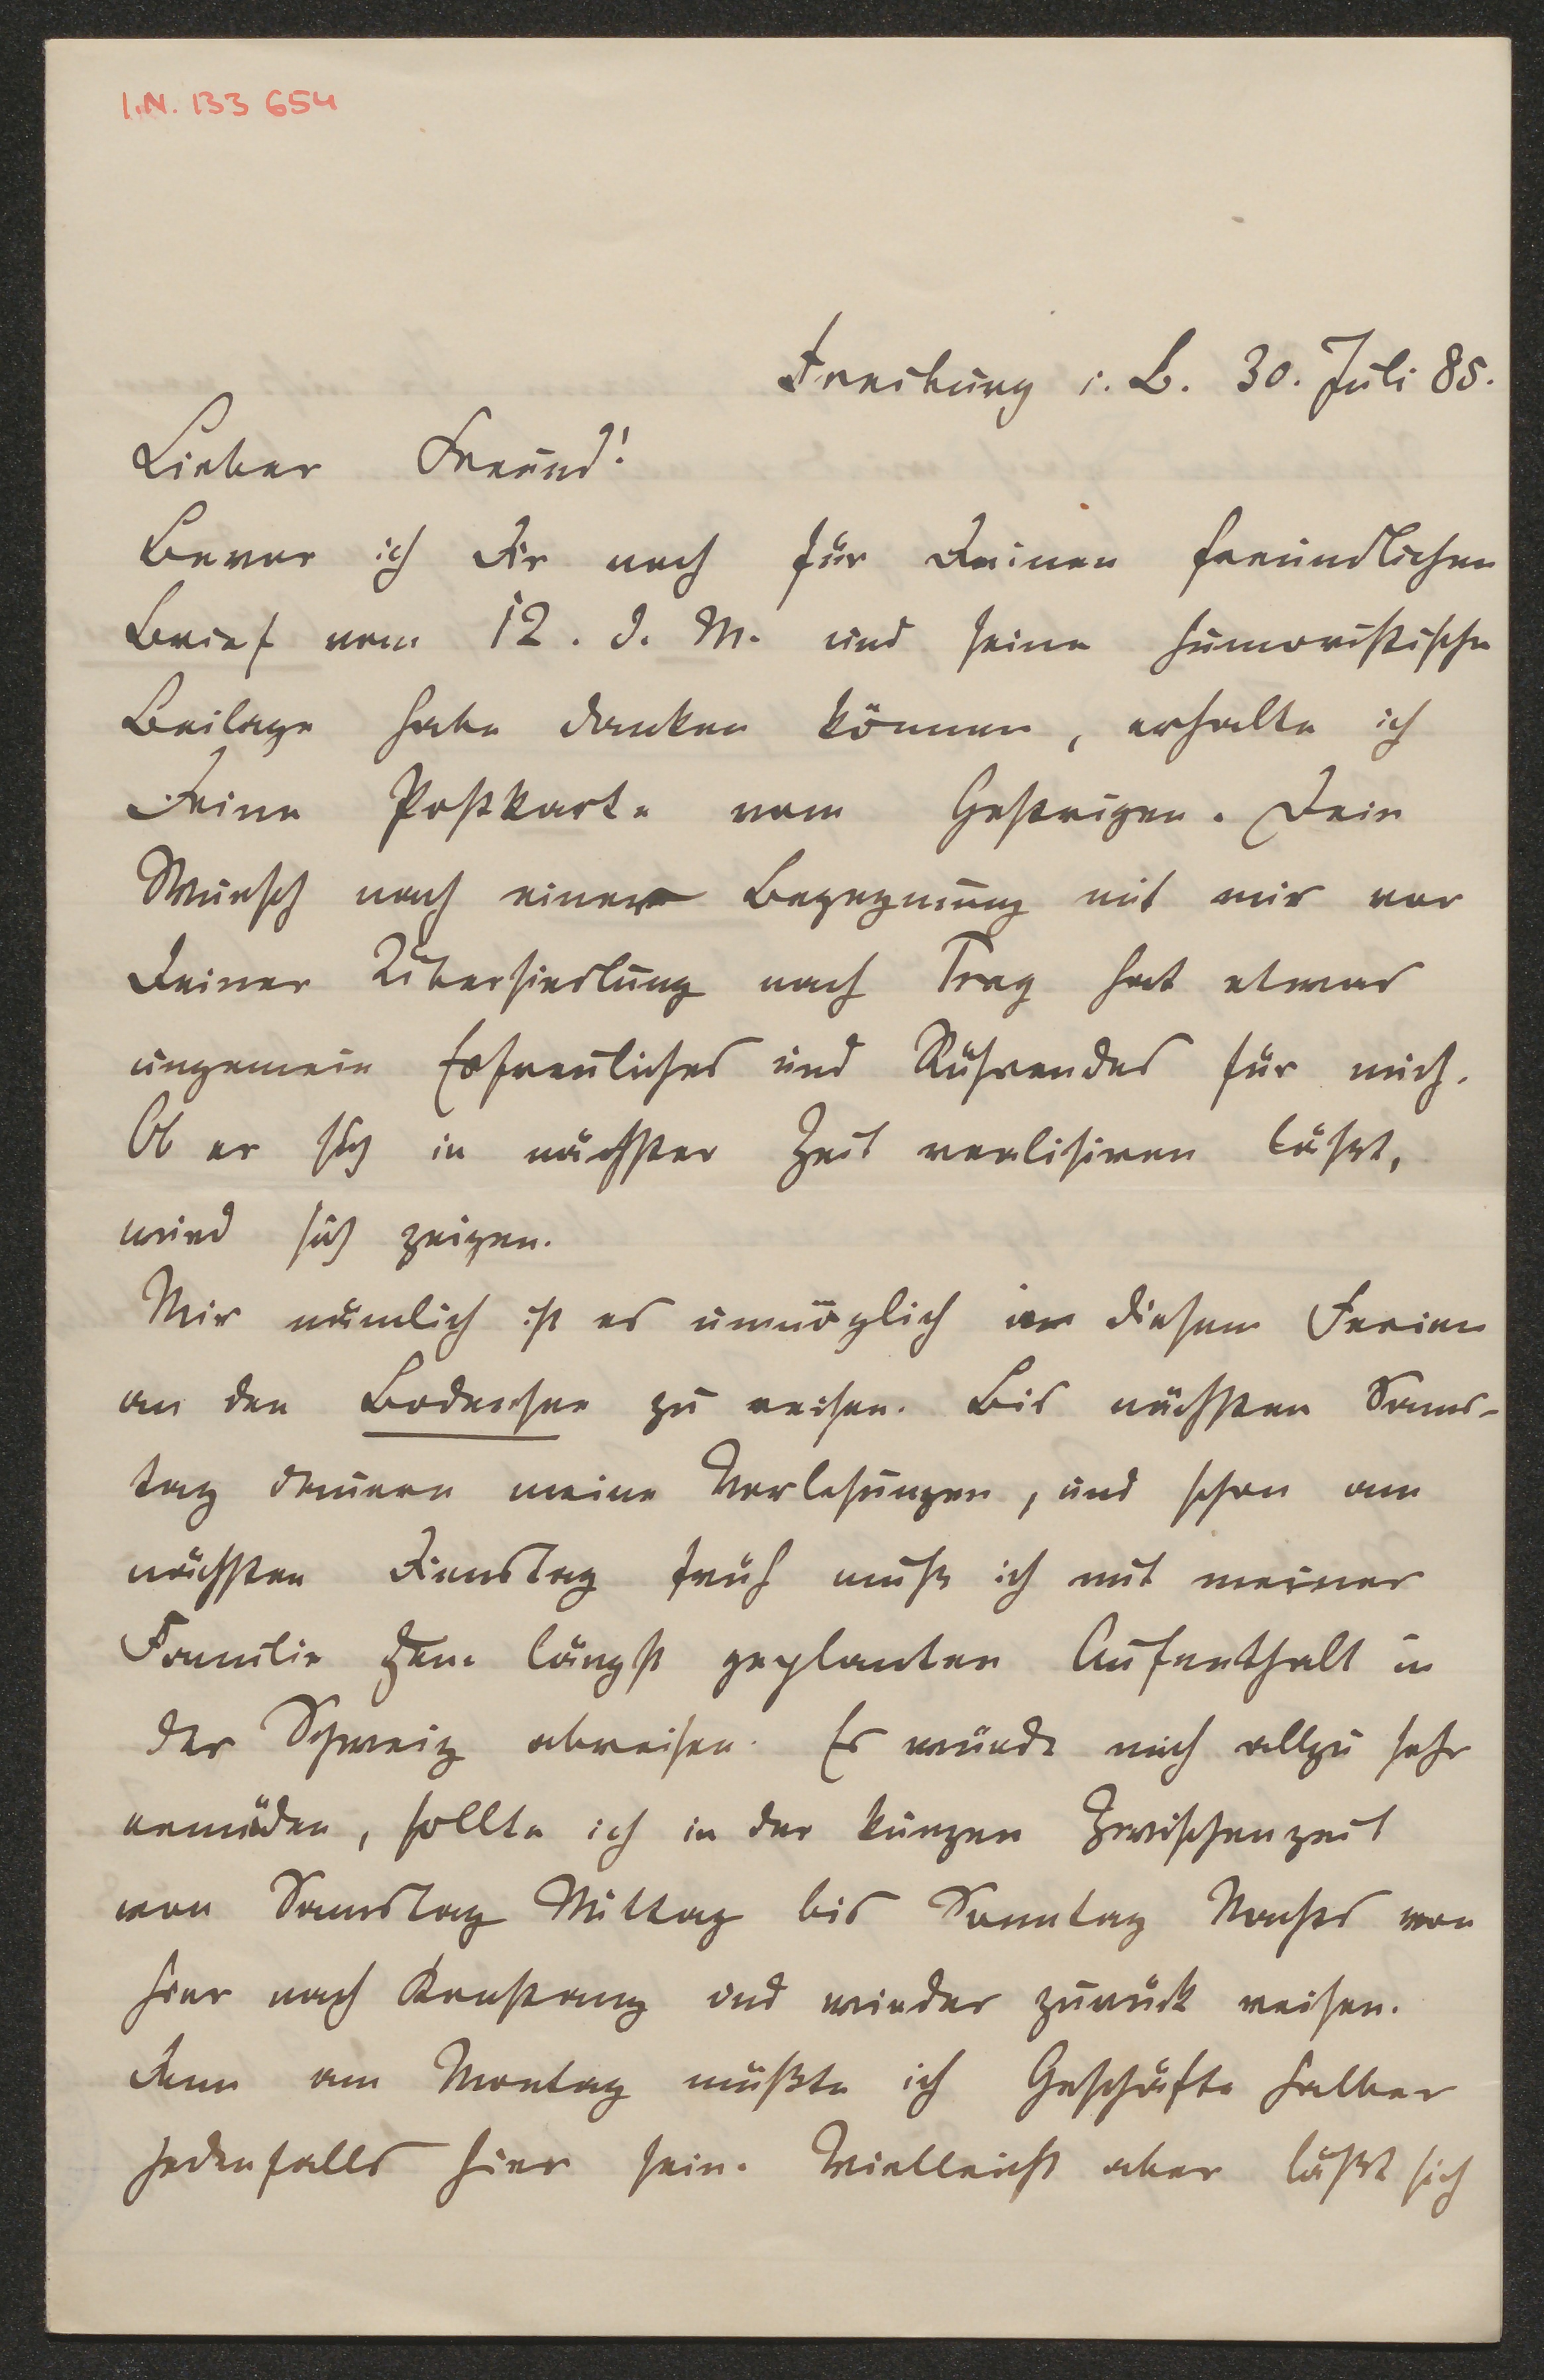 I.N. 133 654
Freiburg i. B. 30. Juli 85.
Lieber Freund!
Bevor ich Dir noch für Deinen freundlichen
Brief vom 12. d. M. und seine humoristische
Beilage habe danken können, erhalte ich
Deine Postkarte vom Gestrigen. Dein
Wunsch nach einer Begegnung mit mir vor
Deiner Übersiedlung nach Prag hat etwas
ungemein Erfreuliches und Rührendes für mich.
Ob er sich in nächster Zeit realisiren läßt,
wird sich zeigen.
Mir nämlich ist es unmöglich in diesen Ferien
an den Bodensee zu reisen. Bis nächsten Sams-
tag dauern meine Vorlesungen, und schon am
nächsten Dienstag früh muß ich mit meiner
Familie zum längst geplanten Aufenthalt in
der Schweiz abreisen. Es würde mich allzu sehr
ermüden, sollte ich in der kurzen Zwischenzeit
von Samstag Mittag bis Sonntag Nachts von
hier nach Konstanz und wieder zurück reisen.
Denn am Montag müßte ich Geschäfte halber
jedenfalls hier sein. Vielleicht aber läßt sich